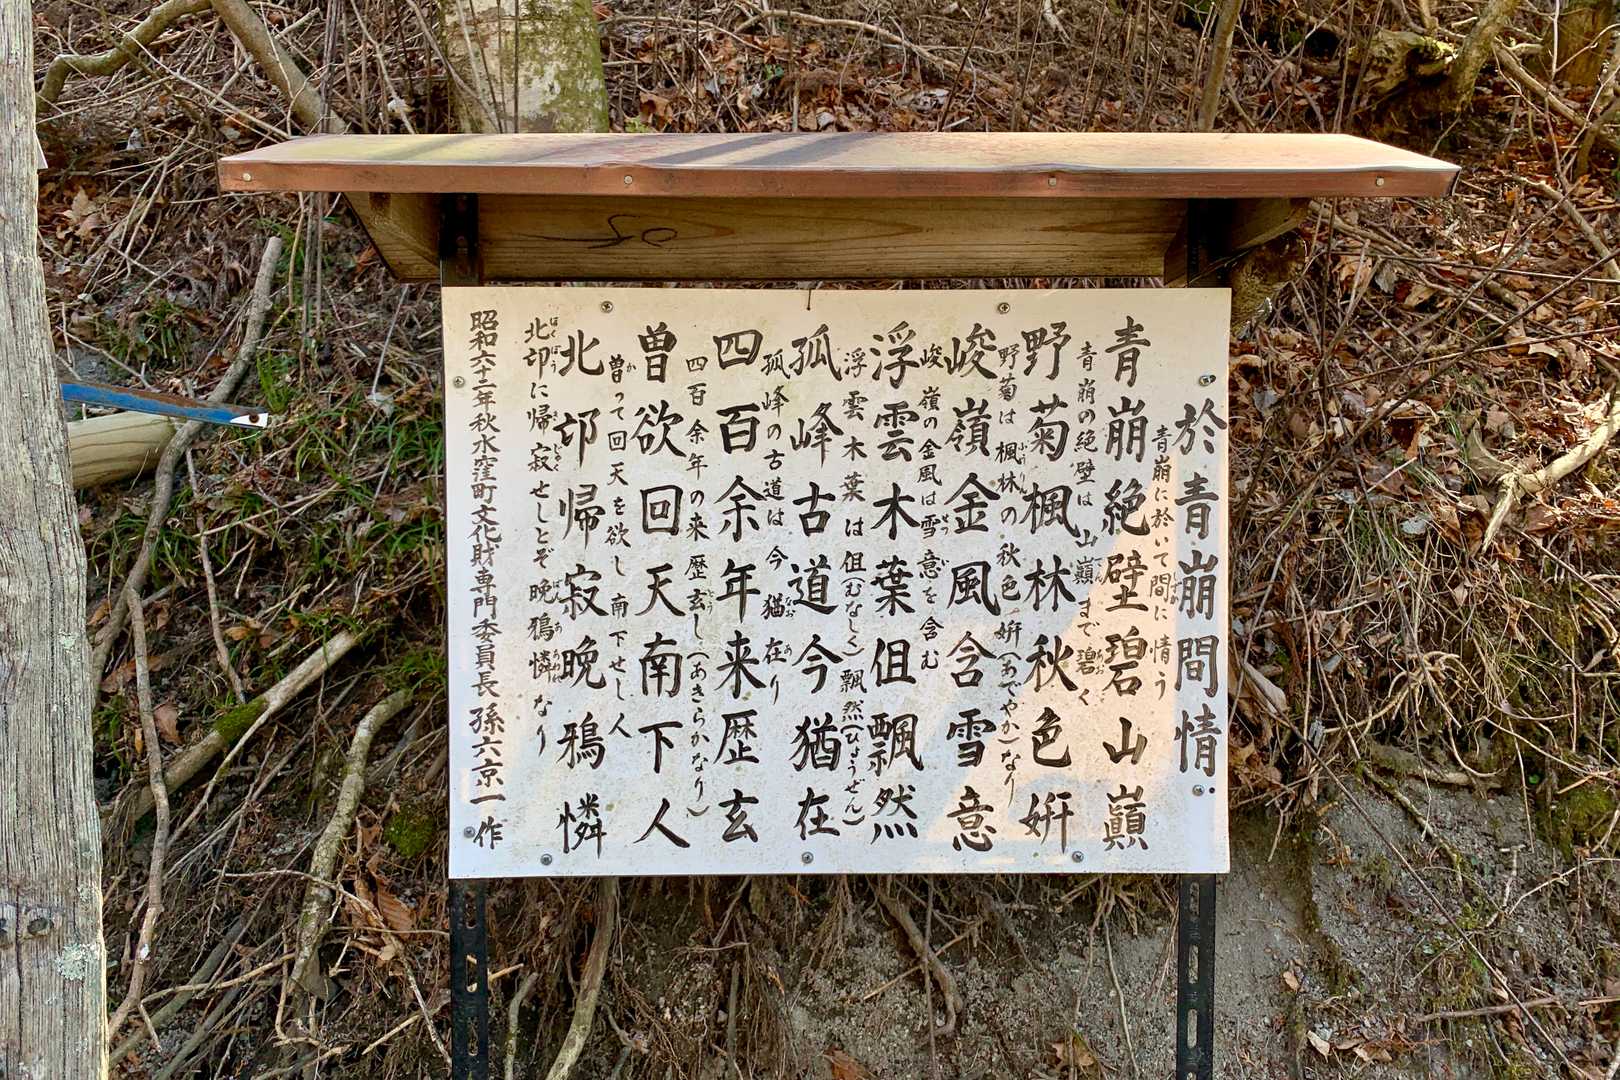 於青崩間情
青崩に於いて間に情う
青崩絶壁碧山巓
青崩の絶壁は山巓まで碧く
野菊楓林秋色姸
野菊は楓林の秋色姸(あでやか)なり
峻嶺金風含雪意
峻嶺の金風は雪意を含む
浮雲木葉伹飄然
浮雲木葉は伹(むなしく)飄然(ひょうぜん)
孤峰古道今猶在
孤峰の古道は今猶在り
四百余年来歴玄
四百余年の来歴玄し(あきらかなり)
曽欲回天南下人
曽って回天を欲し南下せし人
北邙帰寂晩鴉憐
北邙に帰寂せしとぞ晩鴉憐なり
昭和六十二年秋水窪町文化財専門委員長 孫六京一作